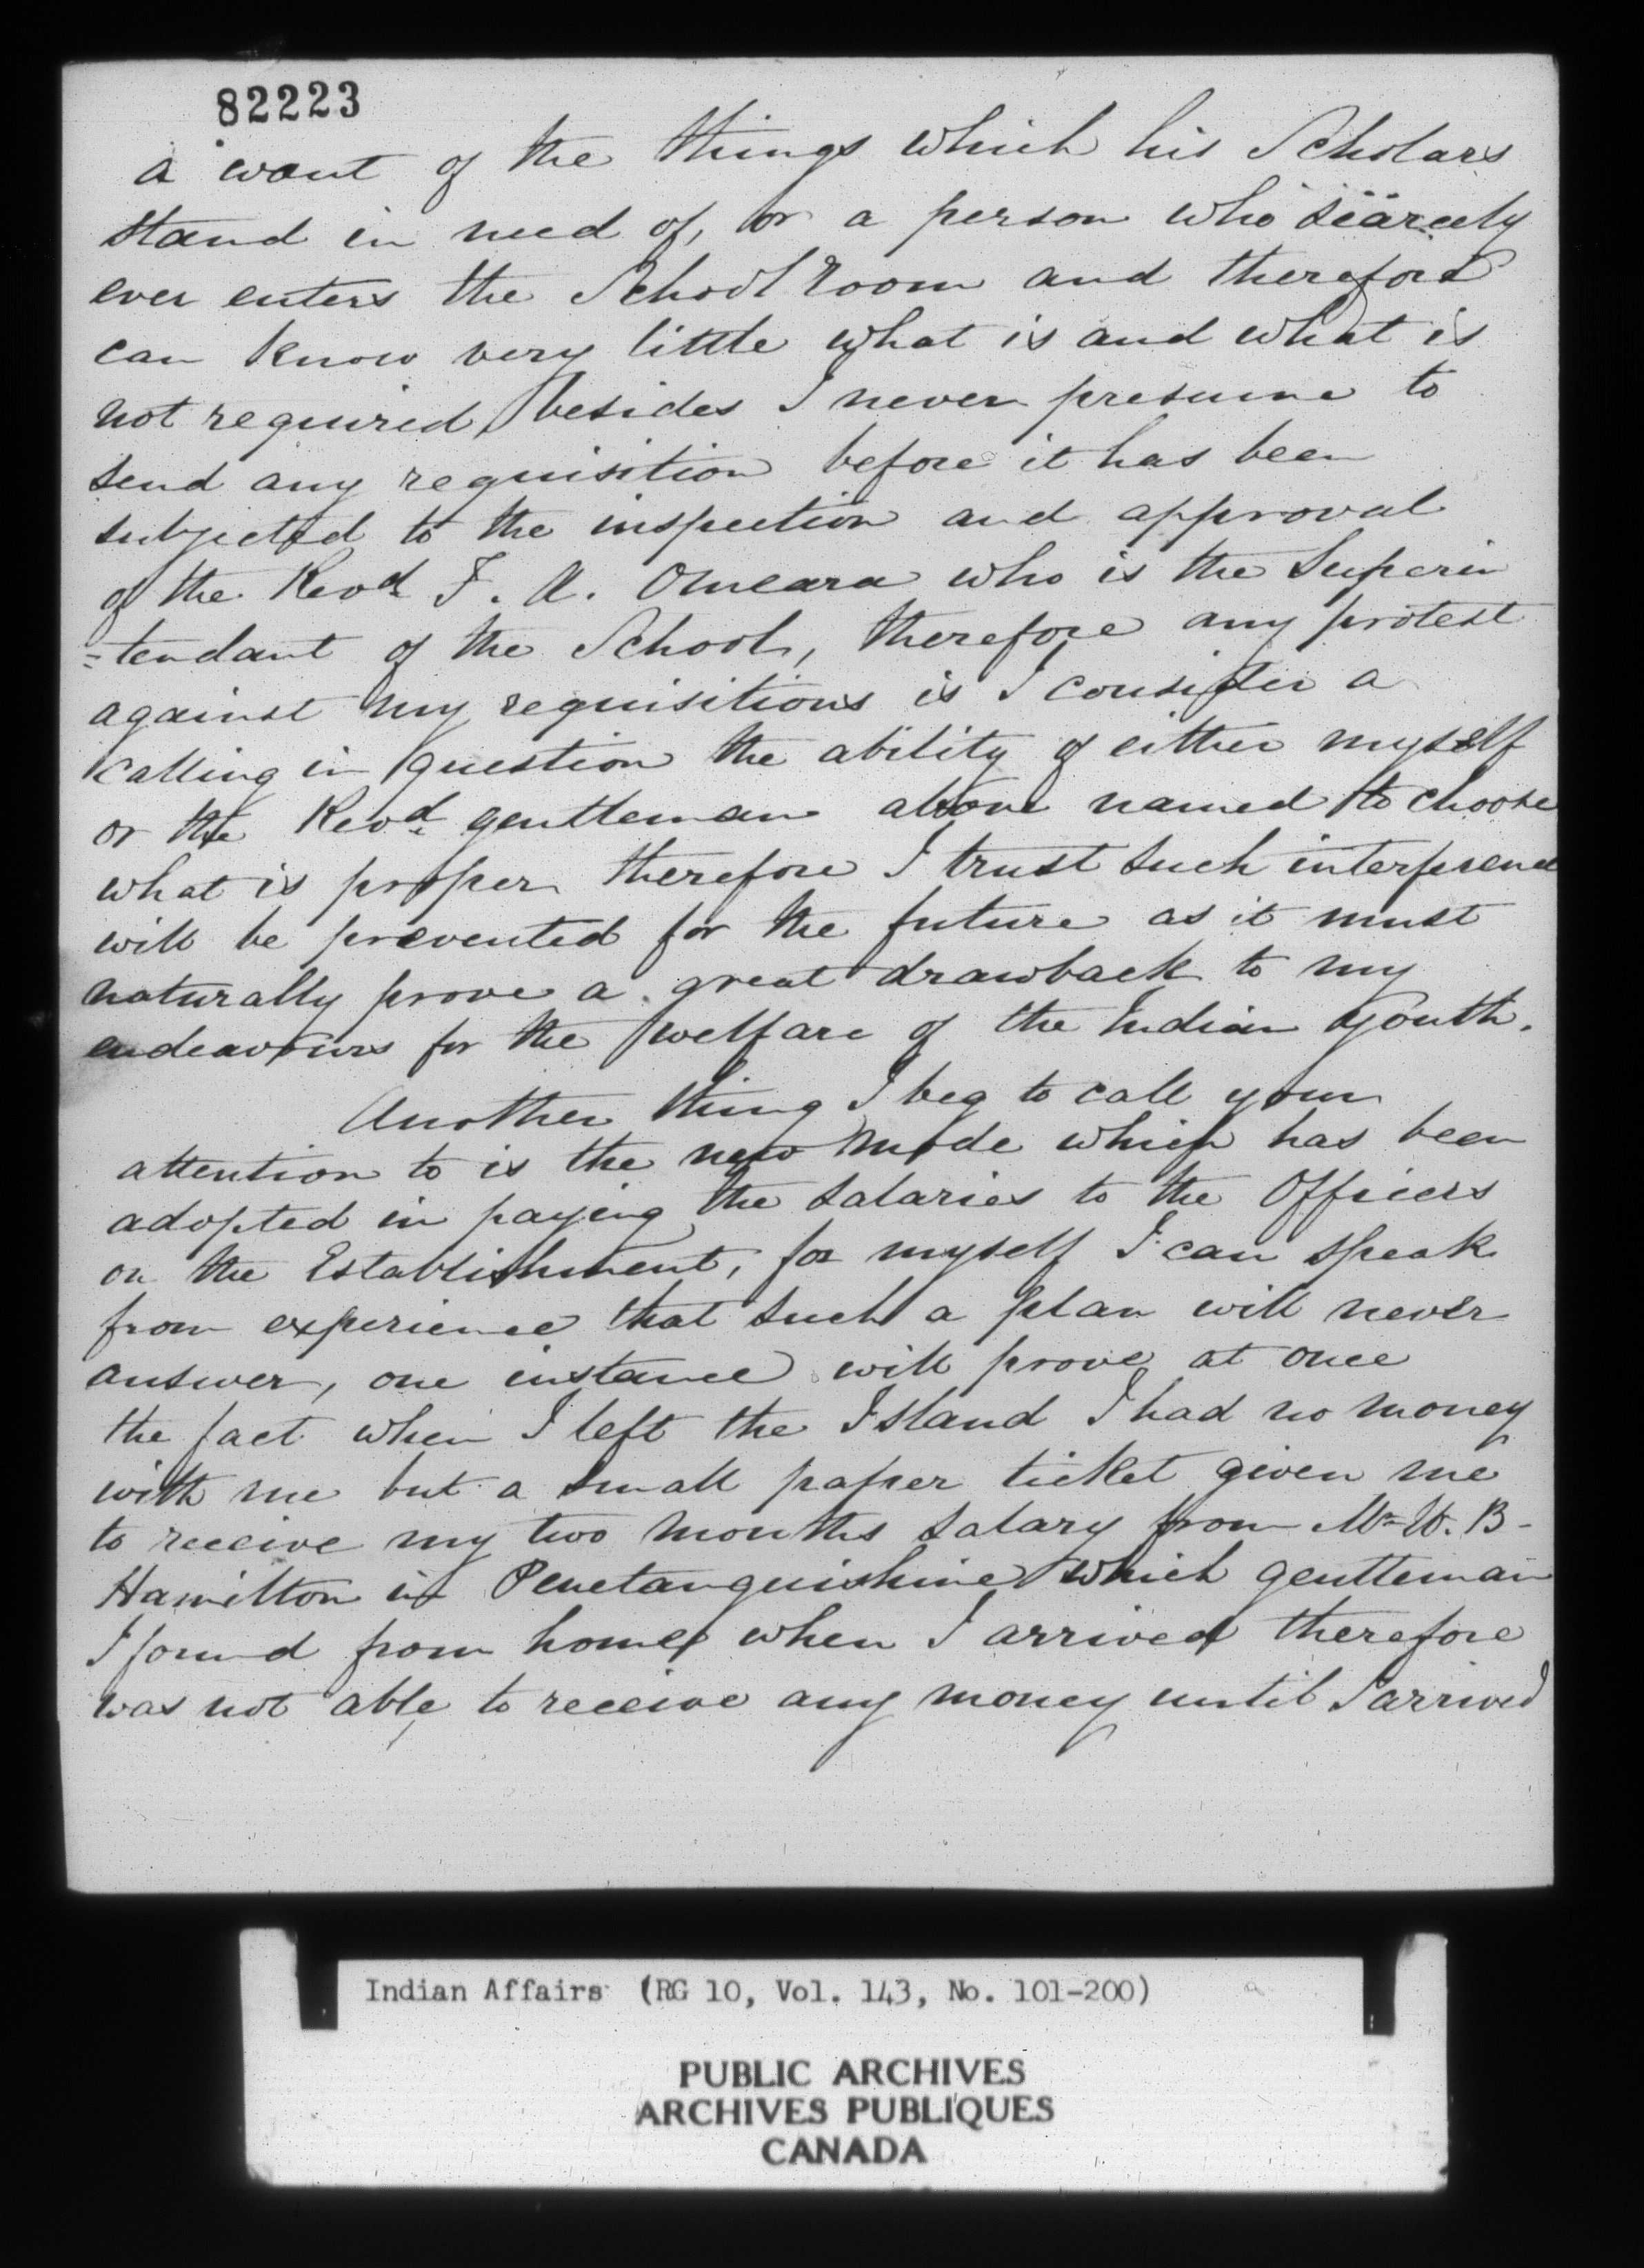 82223
a want of the things which his Scholars
stand in need of, or a person who scarcely
ever enters the School room and therefore
can know very little what is and what is
not required, besides I never presume to
send any requisition before it has been
subjected to the inspection and approval
of the Revd F. A. Omeara who is the Superin
=tendant of the School, therefore any protest
against my requisitions is I consider a
calling in question the ability of either myself
or the Revd. gentleman above named to choose
what is proper therefore I trust such interference
will be prevented for the future as it must
naturally prove a great drawback to my
endeavours for the welfare of the Indian Youth.
Another thing I beg to call your
attention to is the new mode which has been
adopted in paying the salaries to the Officers
on the Establishment, for myself I can speak
from experience that such a plan will never
answer, one instance will prove at once
the fact when I left the Island I had no money
with me but a small paper ticket given me
to receive my two months salary from Mr W. B-
Hamilton in Penetanguishine which gentleman
I found from home when I arrived therefore
was not able to receive any money until I arrived
Indian Affairs (RG 10, Vol. 143, No. 101-200)
PUBLIC ARCHIVES
ARCHIVES PUBLIQUES
CANADA